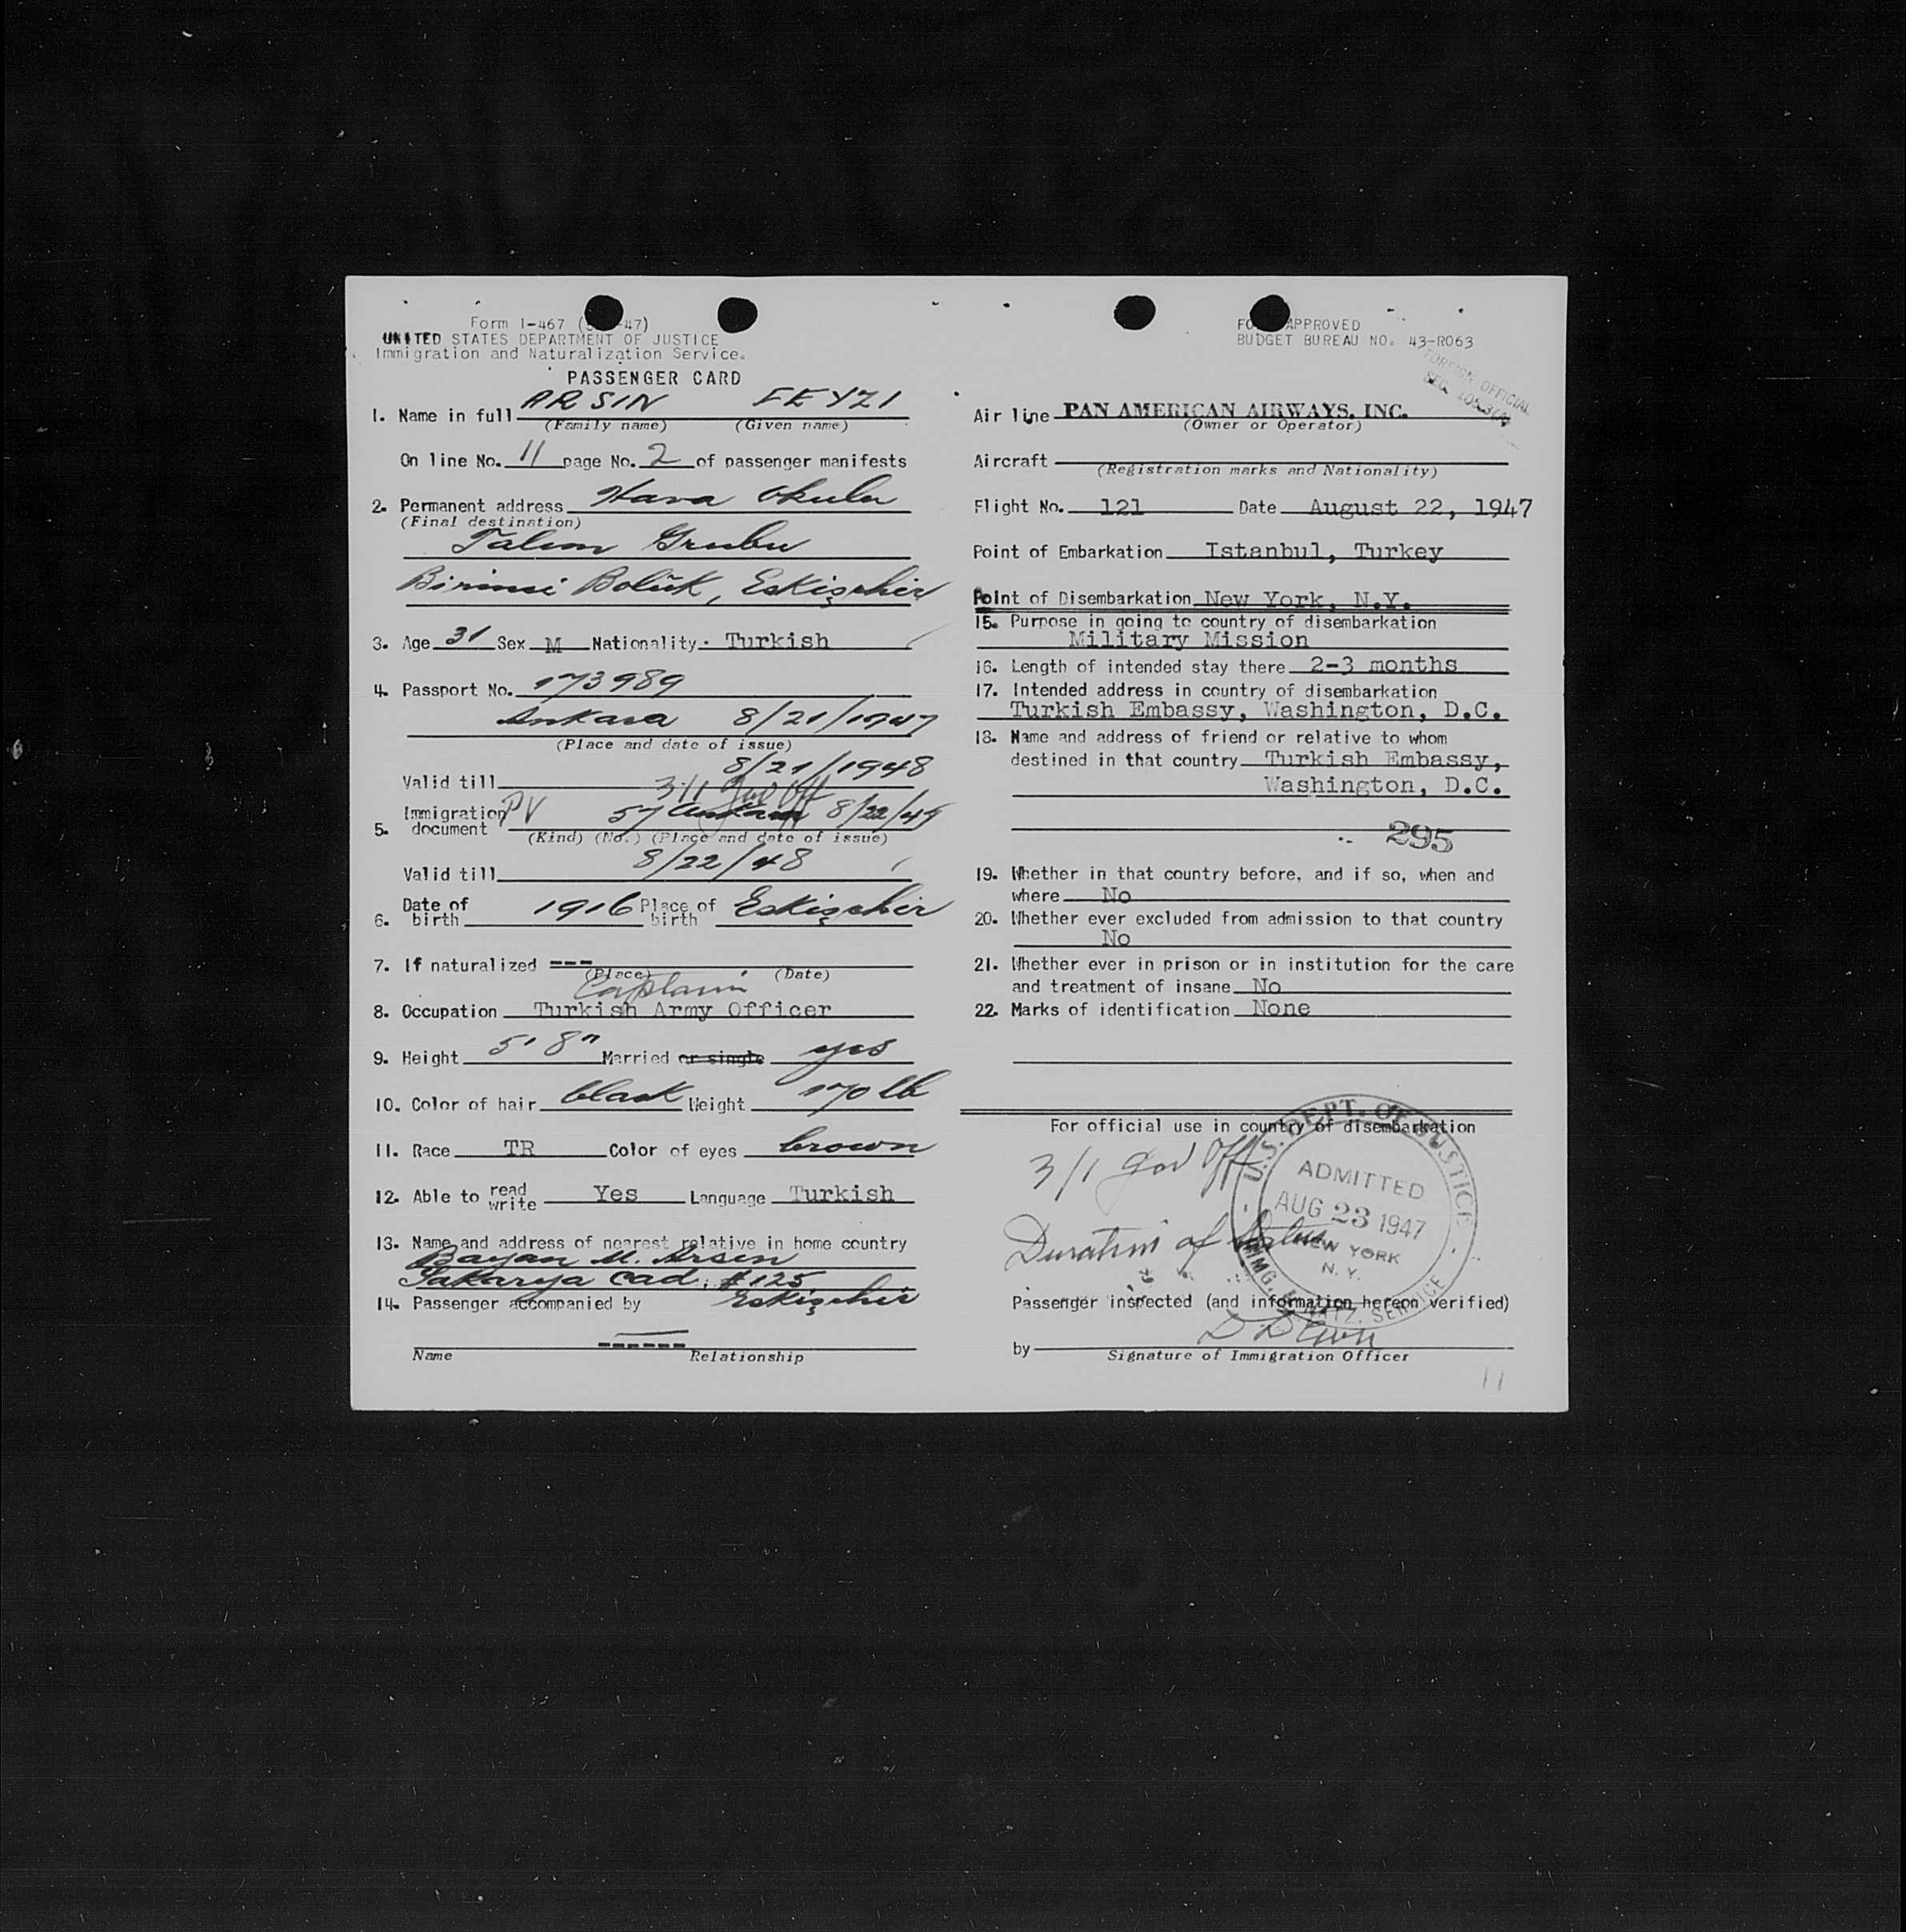 Form I-467 ( -47)
UNITED STATES DEPARTMENT OF JUSTICE
Immigration and Naturalization Service.
PASSENGER CARD
1. Name in full ARSIN FEYZI
(Family name) (Given name)
On line No. 11 page No. 2 of passenger manifests
2. Permanent address Hava Okulu
(Final destination)
Talim Grubu
Birinci Bolük, Eskişehir
3. Age 31 Sex M Nationality Turkish
4. Passport No. 173989
Ankara 8/21/1947
(Place and date of issue)
8/21/1948
Valid till
3/1 Gov Off
5. Immigration document PV 57 Ankara 8/22/47
(Kind) (No.) (Place and date of issue)
Valid till 8/22/48
6. Date of birth 1916 Place of birth Eskişehir
7. If naturalized ---
(Place) (Date)
Captain
8. Occupation Turkish Army Officer
9. Height 5' 8" Married or single yes
10. Color of hair black Weight 170 lb
11. Race TR Color of eyes brown
12. Able to read write Yes Language Turkish
13. Name and address of nearest relative in home country
Bayan M. Arsin
Sakarya Cad. #125
Eskişehir
14. Passenger accompanied by
------
Name Relationship
FO APPROVED
BUDGET BUREAU NO. 43-R063
FOREIGN OFFICIAL
SEC.
Air line PAN AMERICAN AIRWAYS, INC.
(Owner or Operator)
Aircraft
(Registration marks and Nationality)
Flight No. 121 Date August 22, 1947
Point of Embarkation Istanbul, Turkey
Point of Disembarkation New York, N.Y.
15. Purpose in going to country of disembarkation
Military Mission
16. Length of intended stay there 2-3 months
17. Intended address in country of disembarkation
Turkish Embassy, Washington, D.C.
18. Name and address of friend or relative to whom
destined in that country Turkish Embassy,
Washington, D.C.
295
19. Whether in that country before, and if so, when and
where No
20. Whether ever excluded from admission to that country
No
21. Whether ever in prison or in institution for the care
and treatment of insane No
22. Marks of identification None
For official use in country of disembarkation
3/1 Gov Off
Duration of Status
U.S. DEPT. OF JUSTICE
ADMITTED
AUG 23 1947
NEW YORK
N. Y.
IMMG. & NATZ. SERVICE
Passenger inspected (and information hereon verified)
by
Signature of Immigration Officer
11